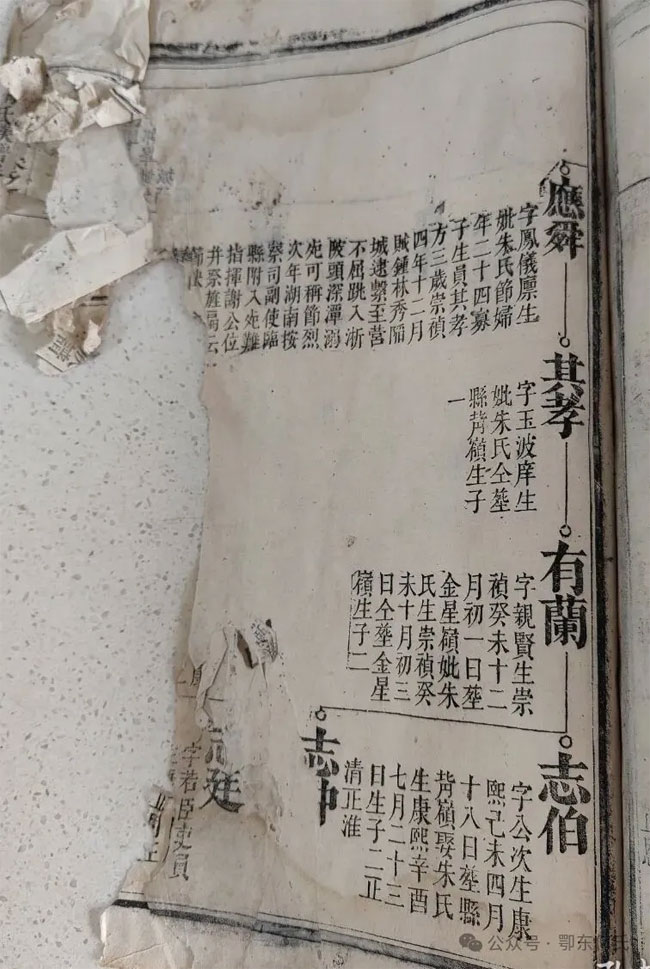 應舜
字鳳儀廪生
妣朱氏節婦
年二十四寡
子生員其孝
方三歲崇禎
四年十二月
賊鍾林秀陷
城逮繫至营
不屈跳入浙
陂頭深潭溺
死可稱節烈
次年湖南按
察司副使臨
縣附入死難
指揮謝公位
井祭
其孝
字玉波庠生
妣朱氏仝塟
縣背嶺生子
一
有蘭
字親賢生崇
禎癸未十二
月初一日塟
金星嶺妣朱
氏生崇禎癸
未十月初三
日仝塟金星
嶺生子二
志伯
字公次生康
熙己未四月
十八日塟縣
背嶺娶朱氏
生康熙辛酉
七月二十三
日生子二正
清正淮
志
廷
字若臣吏員
公众号·鄂东